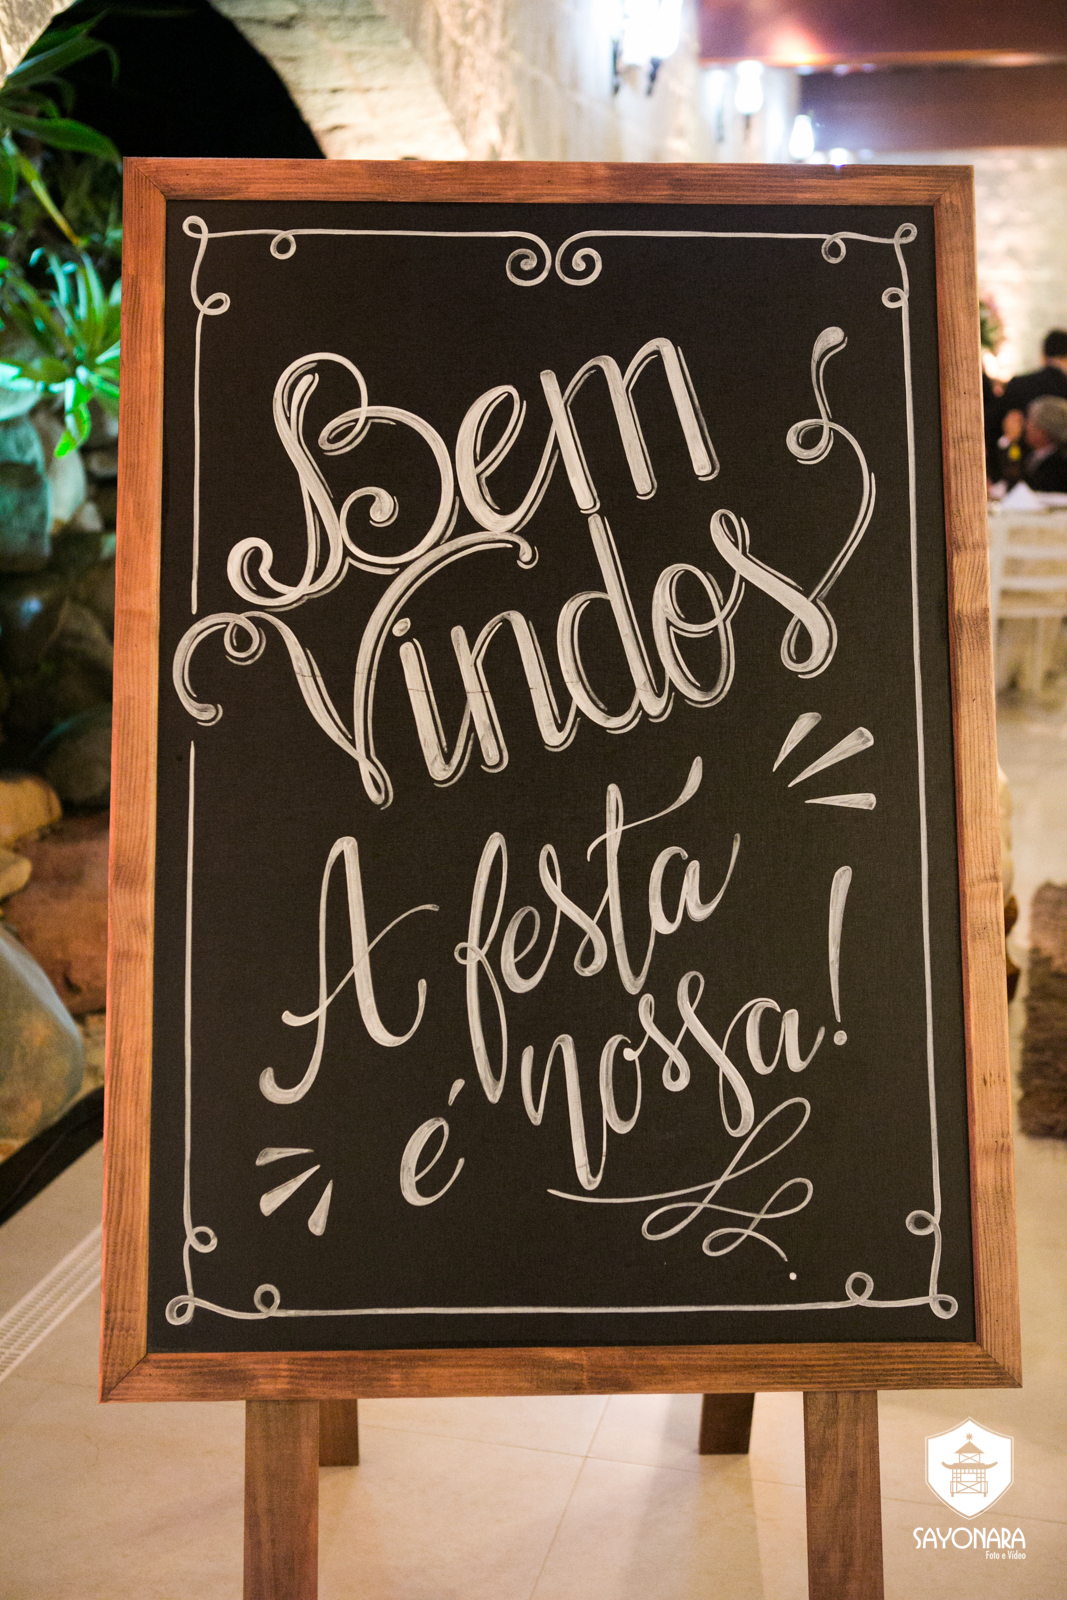 Bem
Vindos
A festa
é nossa!
SAYONARA
Foto e Vídeo